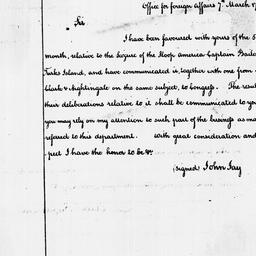 Office for foreign Affairs 7th March 17
Sir
I have been favoured with yours of the
month, relative to the seizure of the Sloop america Captain
Turks Island, and have communicated it, together with one from
Clark & Nightingale on the same subject, to Congress. The resul
their deliberations relative to it shall be communicated to yo
you may rely on my attention to such part of the business as ma
referred to this department. With great consideration and
pect I have the honor to be &c.
(signed) John Jay